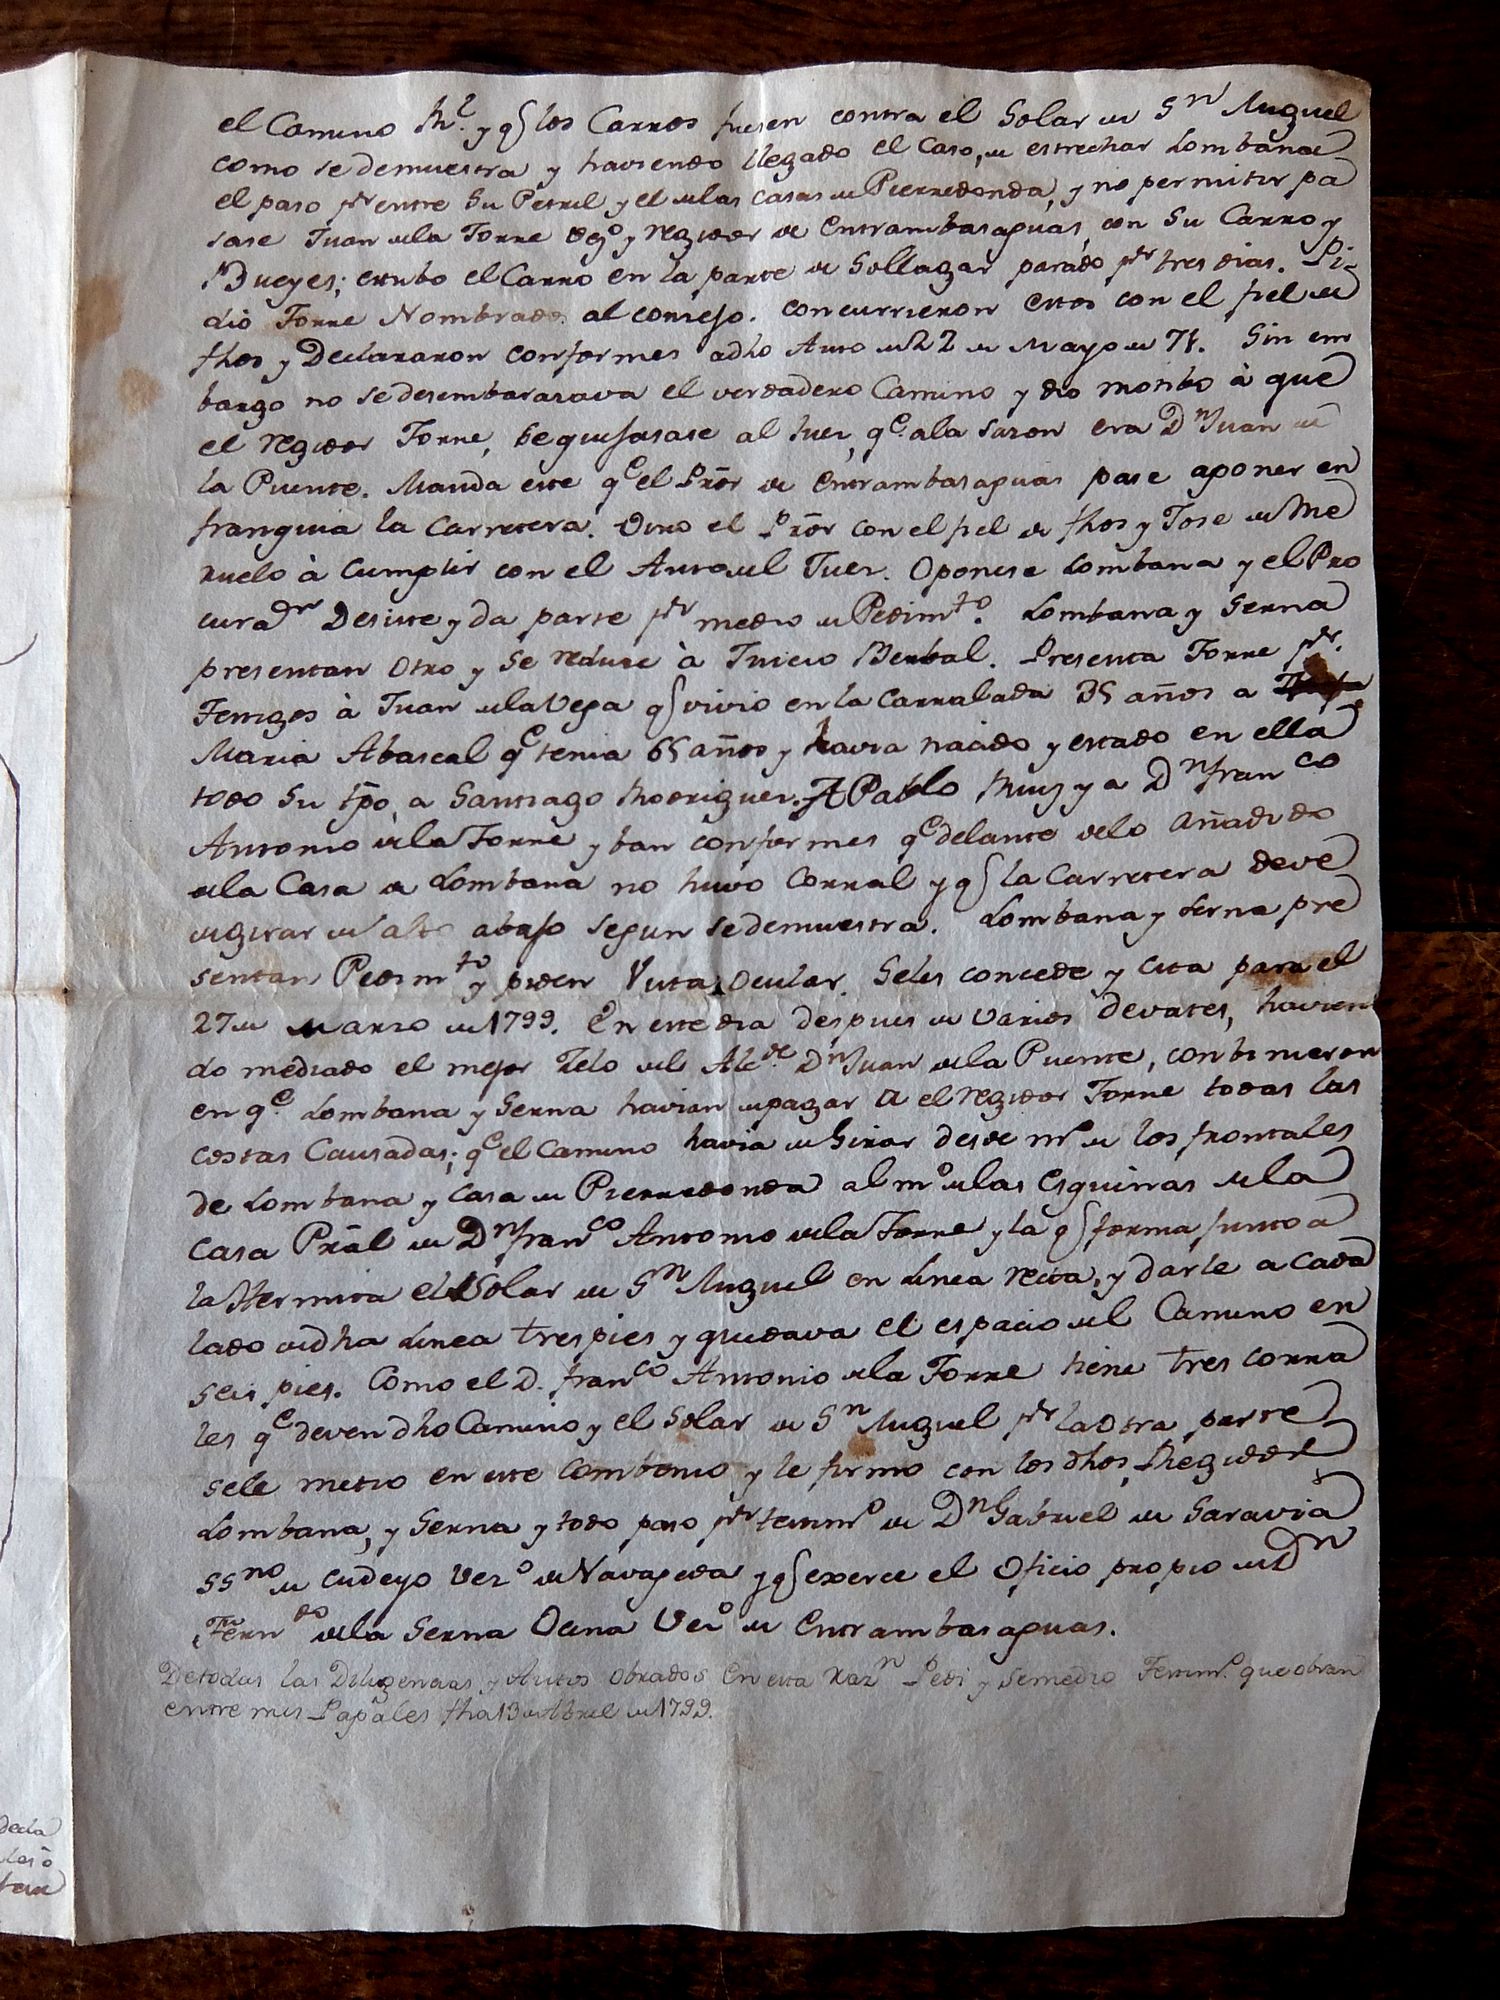 el Camino Rl. y q̃ los Carros fuesen contra el Solar de Sn Miguel
como se demuestra y haviendo llegado el Caso, de estrechar Lombana
el paso pr entre Su Petril y el de las casas de Pierredonda, y no permitir pa
sase Juan de la Torre vezo y rexidor de Entrambasaguas, con Su Carro y
Bueyes; estubo el Carro en la parte de Sollagar parado pr tres dias. Pi-
dio Torre Nombrado al consejo. concurrieron estos con el fiel de
fhos y Declararon conformes a dho Auto de 22 de Mayo de 71. Sin em
bargo no se desembarasava el verdadero Camino y dio motibo à que
el regidor Torre, se quejasase al Juez, qe. a la sazon era Dn Juan de
la Puente. Manda este qe el Pror de Entrambasaguas pase a poner en
franquia la Carretera. Vino el Pror con el fiel de fhos y Jose de Me
ruelo à Cumplir con el Auto del Juez. Oponese Lombana y el Pro
curadr Desiste y da parte pr medio de Pedimto. Lombana y Serna
presentan Otro y Se reduce à Juicio Berbal. Presenta Torre pr.
Testigos à Juan de la Vega q̃ vivio en la Carralada 35 años a
Maria Abascal qe tenia 65 años y havia nacido y estado en ella
todo Su tpo, a Santiago Rodriguez. A Pablo Ruiz y a Dn franco
Antonio de la Torre y ban conformes qe delante de lo Añadido
de la Casa de Lombana no huvo Corral y q̃ la Carretera deve
de girar de alto abajo segun se demuestra. Lombana y Serna pre
sentan Pedimto y piden Vista Ocular. Seles concede y cita para el
27 de Marzo de 1799. En este dia despues de varios devates, havien
do mediado el mejor Zelo del Alcde. Dn Juan de la Puente, conbinieron
en qe. Lombana y Serna havian de pagar a el regidor Torre todas las
costas Causadas; qe el Camino havia de Girar desde mo de los frontales
de Lombana y Casa de Pierredonda al mo de las Esquinas de la
Casa Pral de Dn franco Antonio de la Torre y la q̃ forma junto a
la Hermita el Solar de Sn Miguel en Linea recta, y darle a cada
lado de dha Linea tres pies y quedava el espacio del Camino en
seis pies. Como el D. franco Antonio de la Torre tiene tres corra
les qe deven dho Camino y el Solar de Sn Miguel pr la Otra parte
sele metio en este Combenio y le firmo con los dhos, Regidor
Lombana, y Serna y todo paso pr testimo de Dn Gabriel de Saravia
ssno de Cudeyo Vezo de Navajeda y q̃ exerce el Oficio propio de Dn
Ferndo de la Serna Ocina Vezo de Entrambasaguas.
De todas las Diligencias y Autos Obrados En esta razn Pedi y se me dio Testimo. que obran
entre mis Papales fha 13 de Abril de 1799.
decla